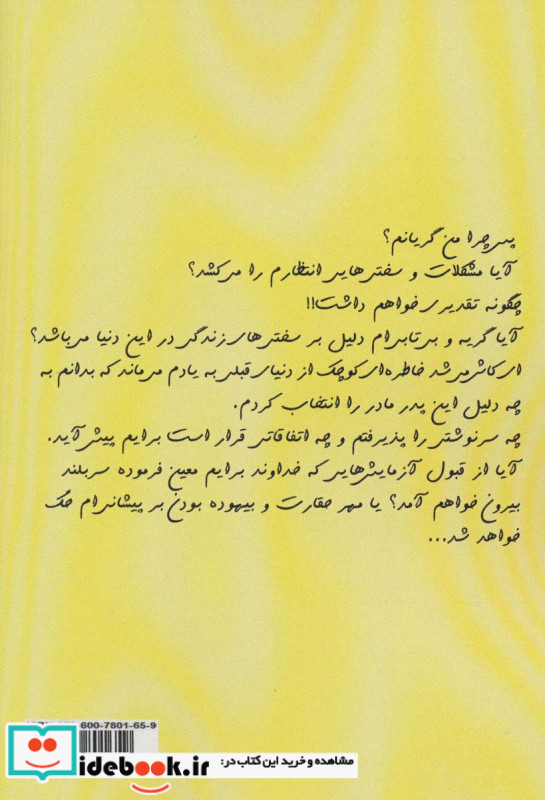 پس چرا من گریانم؟
آیا مشکلات و سختی‌هایی انتظارم را می‌کشد؟
چگونه تقدیری خواهم داشت!!
آیا گریه و بی‌تابی‌ام دلیل بر سختی‌های زندگی در این دنیا می‌باشد؟
ای کاش می‌شد خاطره‌ای کوچک از دنیای قبلی به یادم می‌ماند که بدانم به
چه دلیل این پدر مادر را انتخاب کردم.
چه سرنوشتی را پذیرفتم و چه اتفاقاتی قرار است برایم پیش آید.
آیا از قبول آزمایش‌هایی که خداوند برایم معین فرموده سربلند
بیرون خواهم آمد؟ یا مهر حقارت و بیهوده بودن بر پیشانی‌ام حک
خواهد شد...
600-7801-65-9
idebook.ir
مشاهده و خرید این کتاب در: